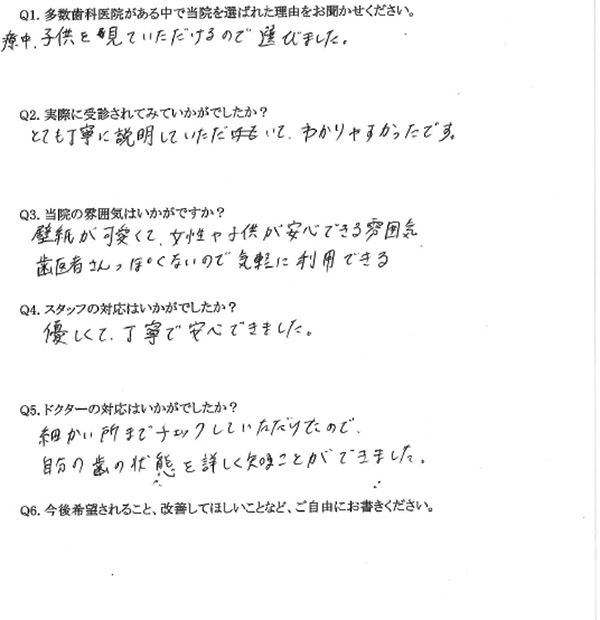 Q1. 多数歯科医院がある中で当院を選ばれた理由をお聞かせください。
療中、子供を見ていただけるので選びました。
Q2. 実際に受診されてみていかがでしたか?
とても丁寧に説明していただいて、わかりやすかったです。
Q3. 当院の雰囲気はいかがですか?
壁紙が可愛くて、女性や子供が安心できる雰囲気
歯医者さんっぽくないので気軽に利用できる
Q4. スタッフの対応はいかがでしたか?
優しくて、丁寧で安心できました。
Q5. ドクターの対応はいかがでしたか?
細かい所までチェックしていただけたので、
自分の歯の状態を詳しく知ることができました。
Q6. 今後希望されること、改善してほしいことなど、ご自由にお書きください。